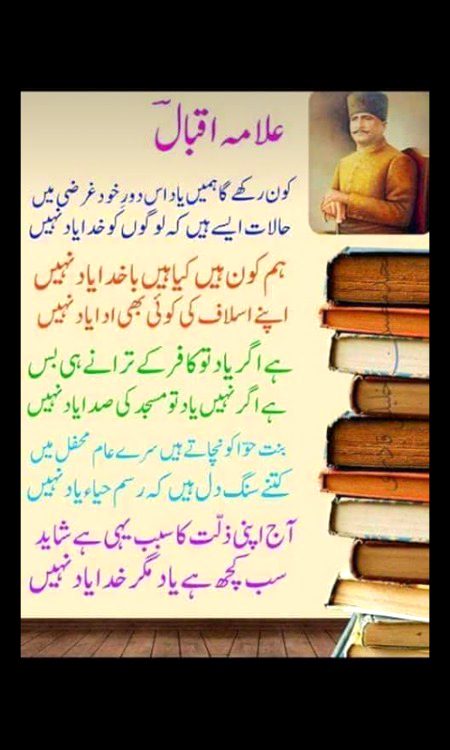 علامہ اقبالؒ
کون رکھے گا ہمیں یاد اس دورِ خود غرضی میں
حالات ایسے ہیں کہ لوگوں کو خدا یاد نہیں
ہم کون ہیں کیا ہیں باخدا یاد نہیں
اپنے اسلاف کی کوئی بھی ادا یاد نہیں
ہے اگر یاد تو کافر کے ترانے ہی بس
ہے اگر نہیں یاد تو مسجد کی صدا یاد نہیں
بنت حوّا کو نچاتے ہیں سرے عام محفل میں
کتنے سنگ دل ہیں کہ رسم حیاء یاد نہیں
آج اپنی ذلّت کا سبب یہی ہے شاید
سب کچھ ہے یاد مگر خدا یاد نہیں